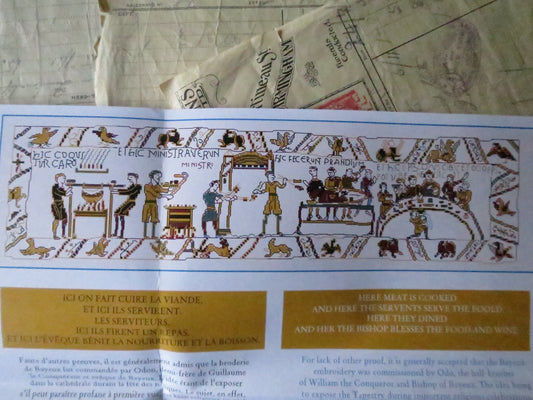 Funerals
Conducted
timeau St
MINGHAM
HIC COQUI
TUR CARO
ET HIC MINISTRAVERUN
MINISTRI
HIC FECERUN PRANDIUM
ICI ON FAIT CUIRE LA VIANDE.
ET ICI ILS SERVIRENT.
LES SERVITEURS.
ICI ILS FIRENT UN REPAS.
ET ICI L'ÉVÊQUE BÉNIT LA NOURRITURE ET LA BOISSON.
HERE MEAT IS COOKED
AND HERE THE SERVENTS SERVE THE FOOLD
HERE THEY DINED
AND HER THE BISHOP BLESSES THE FOOD AND WINE
Faute d'autres preuves, il est généralement admis que la broderie
de Bayeux fut commandée par Odon, demi-frère de Guillaume
le Conquérant et évêque de Bayeux. L'idée étant de l'exposer
dans la cathédrale durant la fête des
s'il peut paraître profane à première vue
Le sujet, en effet,
For lack of other proof, it is generally accepted that the Bayeux
embroidery was commissioned by Odo, the half-brother
of William the Conqueror and Bishop of Bayeux. The idea being
to expose the Tapestry during important religious celebrations